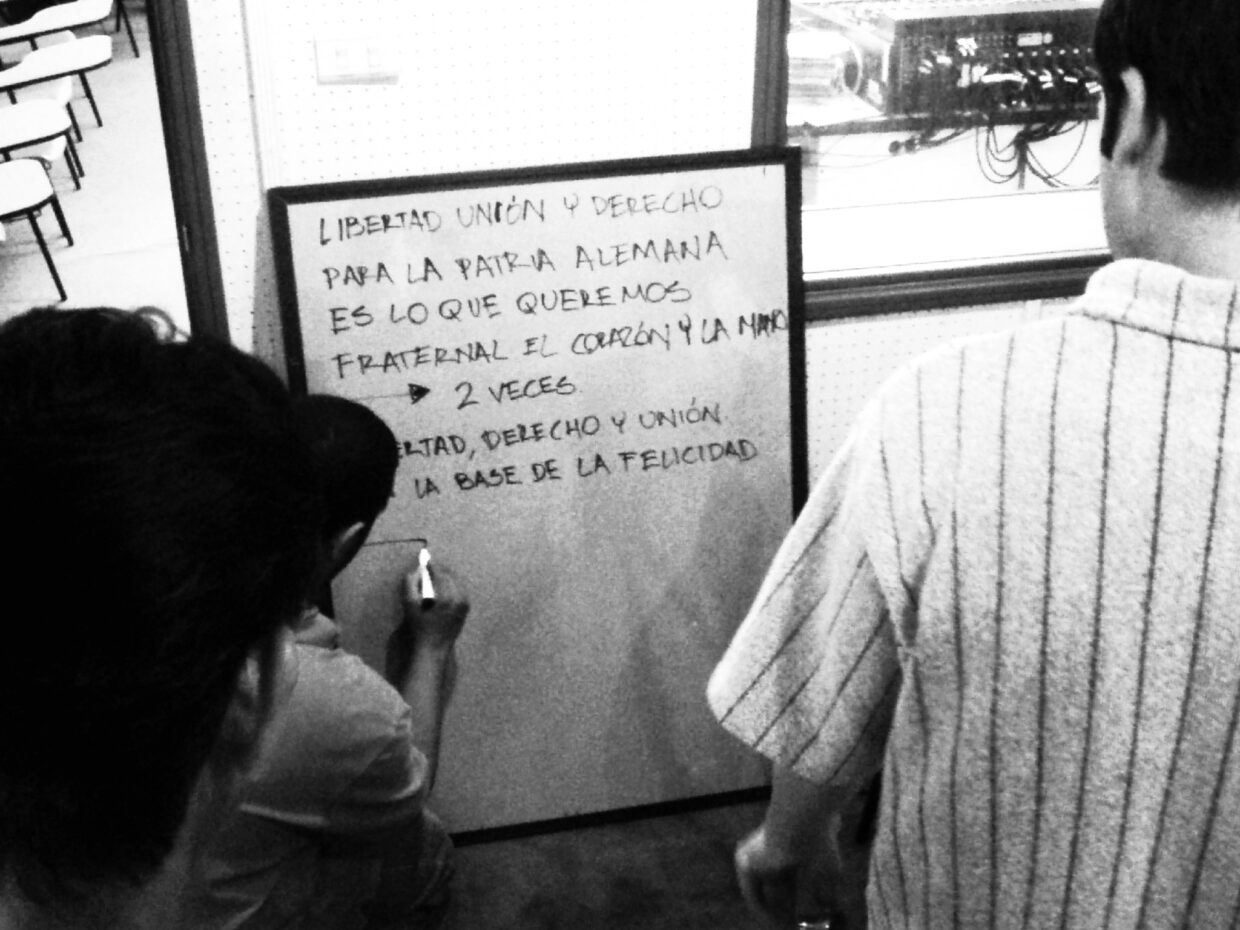 LIBERTAD UNIÓN Y DERECHO
PARA LA PATRIA ALEMANA
ES LO QUE QUEREMOS
FRATERNAL EL CORAZÓN Y LA MANO
→ 2 VECES
ERTAD, DERECHO Y UNIÓN
LA BASE DE LA FELICIDAD